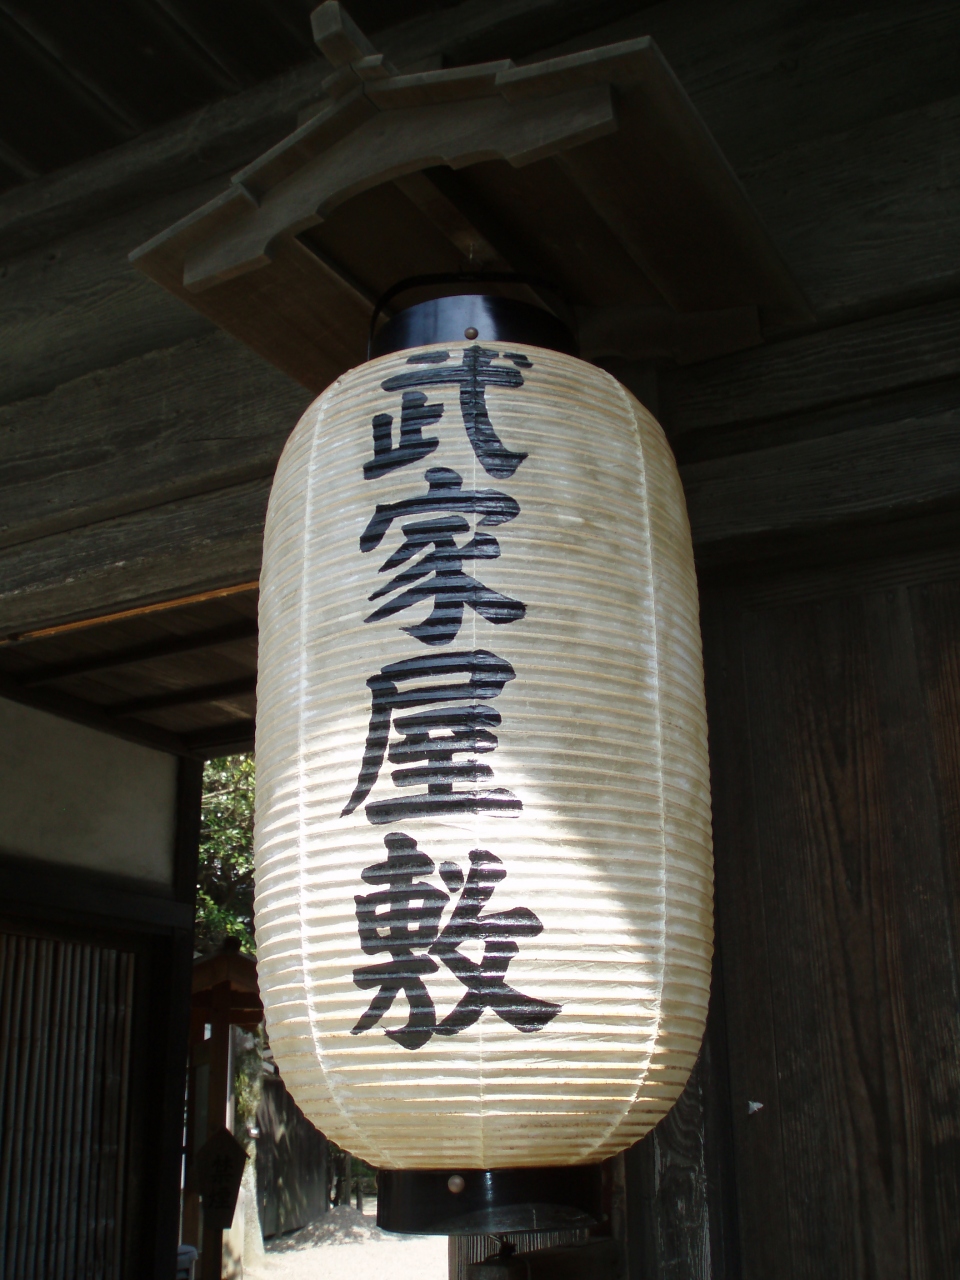 武家屋敷